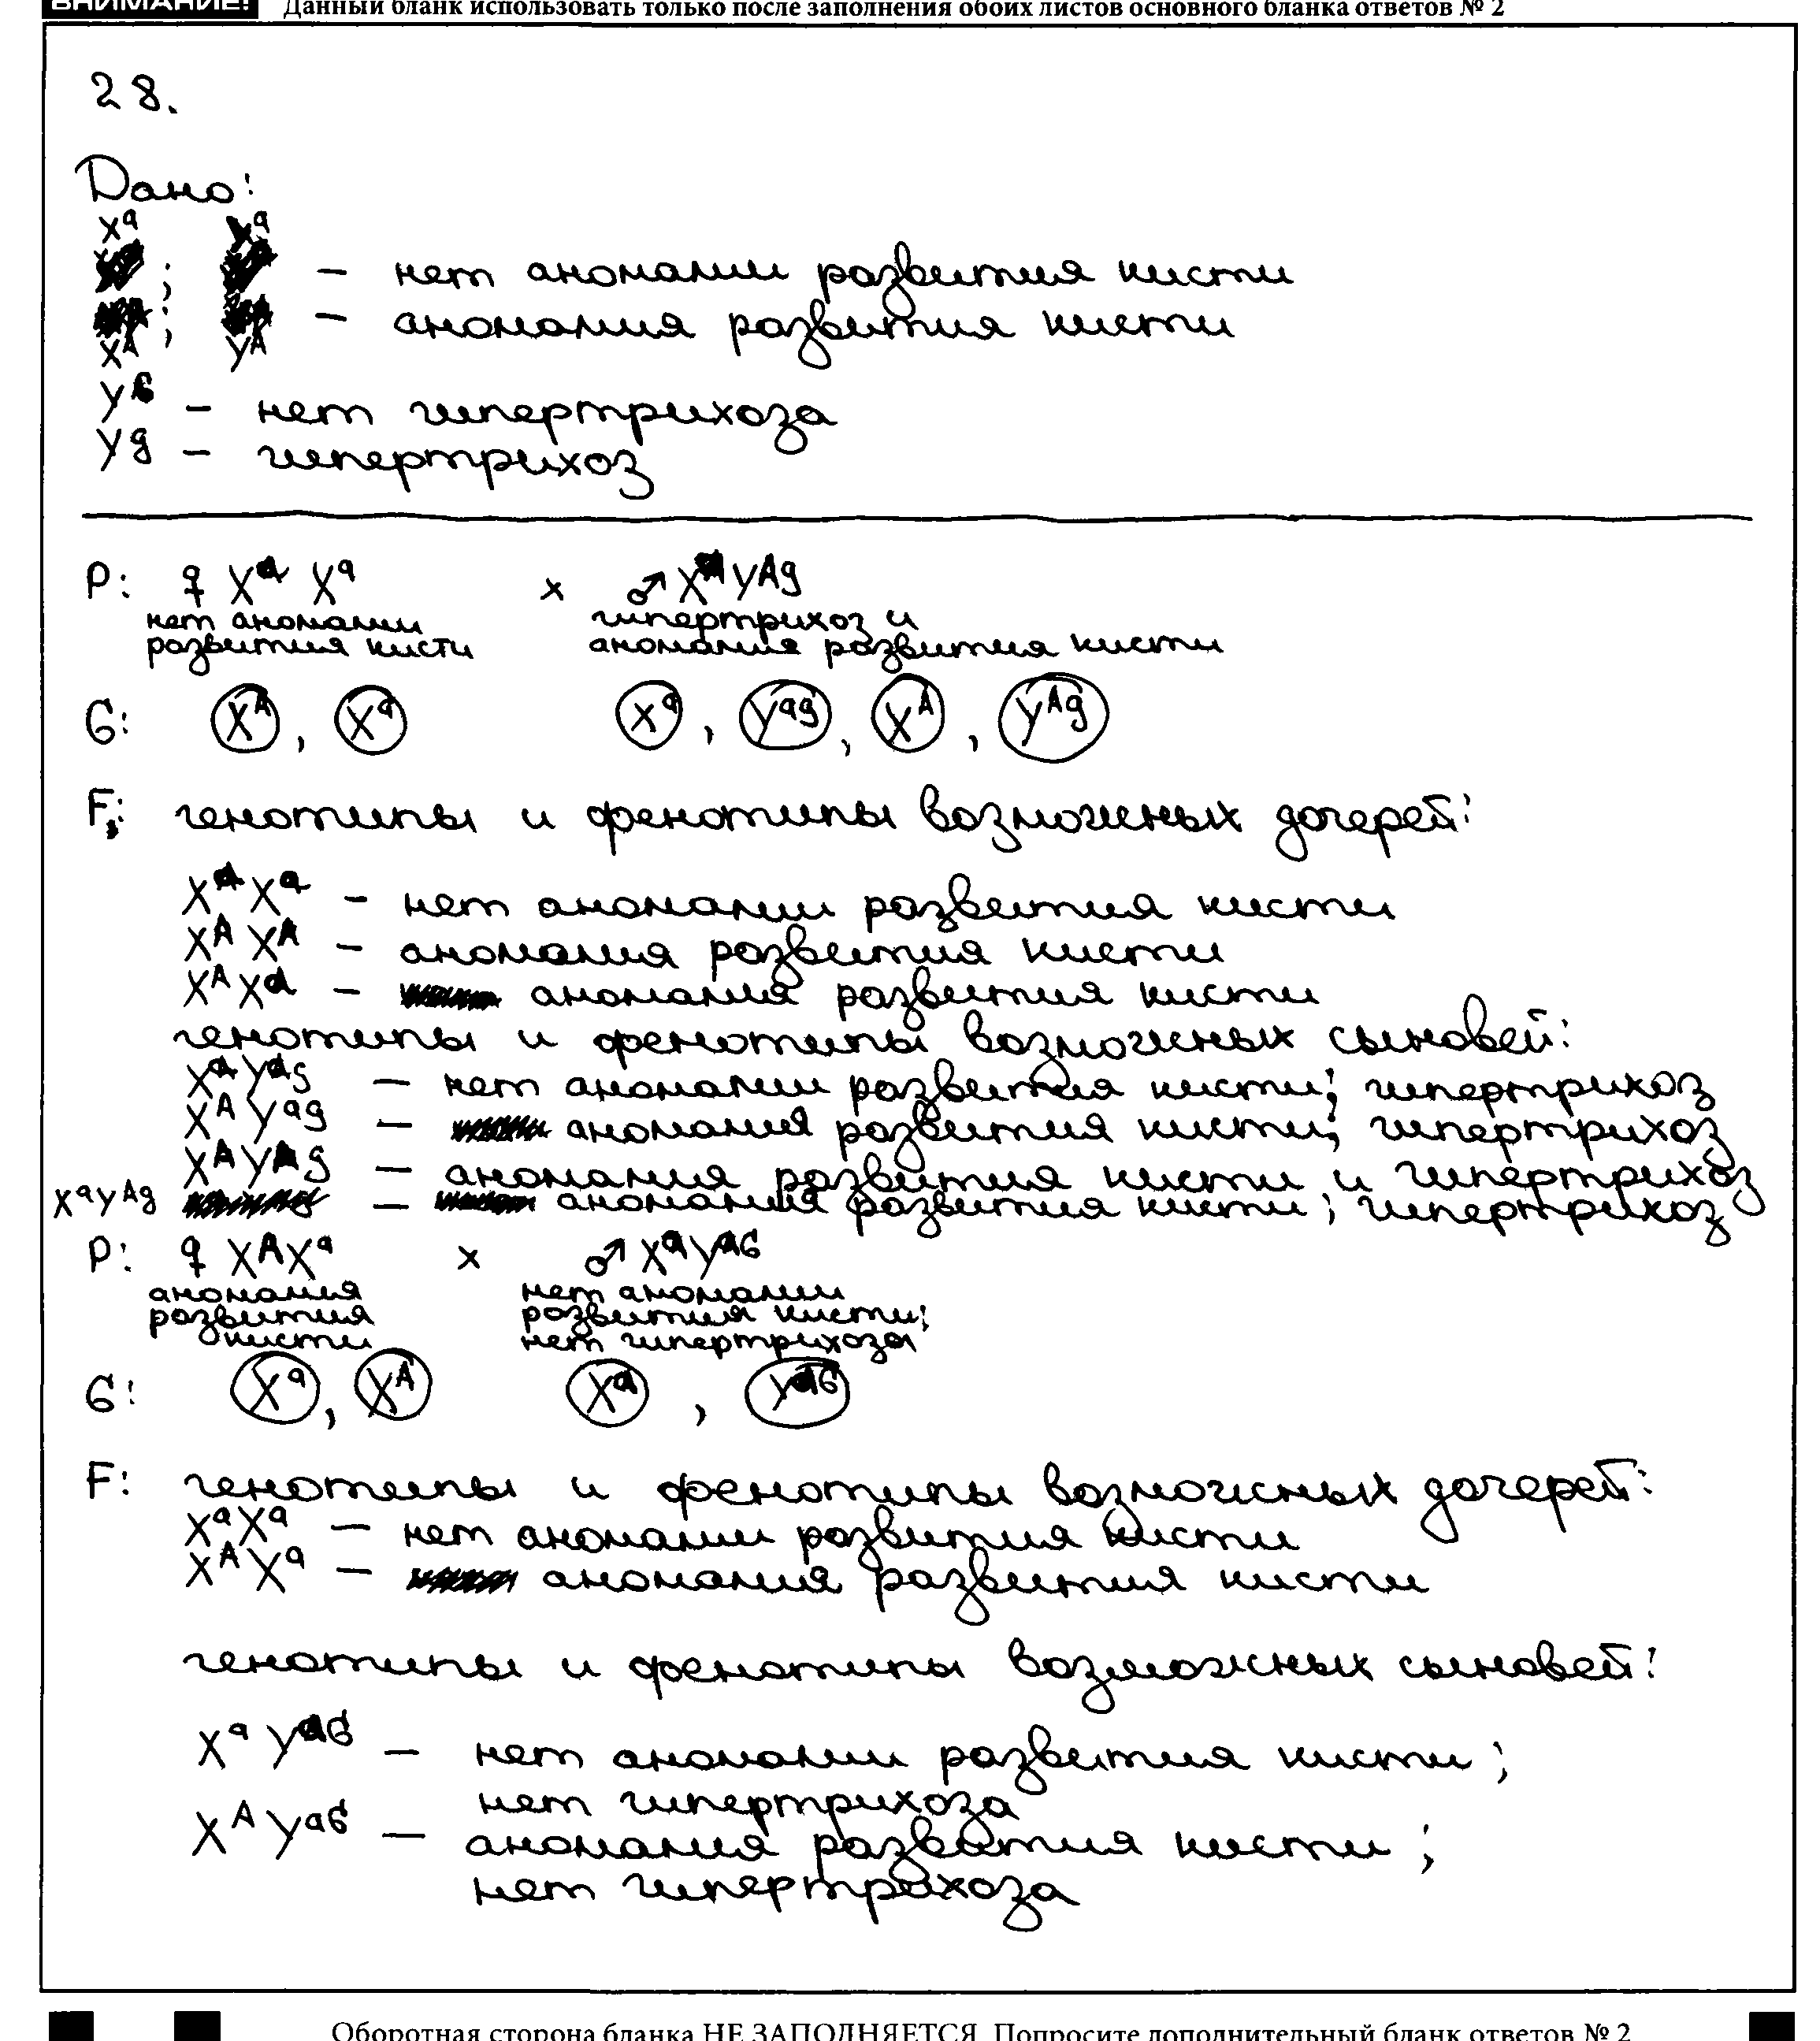 ВНИМАНИЕ! Данный бланк использовать только после заполнения обоих листов основного бланка ответов № 2
28.
Дано:
Xᵃ ; Xᵃ – нет аномалии развития кисти
Xᴬ ; Yᴬ – аномалия развития кисти
Yᴳ – нет гипертрихоза
Yᵍ – гипертрихоз
P: ♀ Xᵃ Xᵃ × ♂ Xᴬ Yᴬᵍ
нет аномалии развития кисти
гипертрихоз и аномалия развития кисти
G: Xᴬ, Xᵃ Xᵃ, Yᵃᵍ, Xᴬ, Yᴬᵍ
F₁: генотипы и фенотипы возможных дочерей:
XᵃXᵃ – нет аномалии развития кисти
XᴬXᴬ – аномалия развития кисти
XᴬXᵃ – аномалия развития кисти
генотипы и фенотипы возможных сыновей:
XᵃYᵃᵍ – нет аномалии развития кисти; гипертрихоз
XᴬYᵃᵍ – аномалия развития кисти; гипертрихоз
XᴬYᴬᵍ – аномалия развития кисти и гипертрихоз
XᵃYᴬᵍ – аномалия развития кисти; гипертрихоз
P: ♀ XᴬXᵃ × ♂ XᵃYᵃᴳ
аномалия развития кисти
нет аномалии развития кисти; нет гипертрихоза
G: Xᵃ, Xᴬ Xᵃ, Yᵃᴳ
F: генотипы и фенотипы возможных дочерей:
XᵃXᵃ – нет аномалии развития кисти
XᴬXᵃ – аномалия развития кисти
генотипы и фенотипы возможных сыновей:
XᵃYᵃᴳ – нет аномалии развития кисти;
нет гипертрихоза
XᴬYᵃᴳ – аномалия развития кисти;
нет гипертрихоза
Оборотная сторона бланка НЕ ЗАПОЛНЯЕТСЯ. Попросите дополнительный бланк ответов № 2